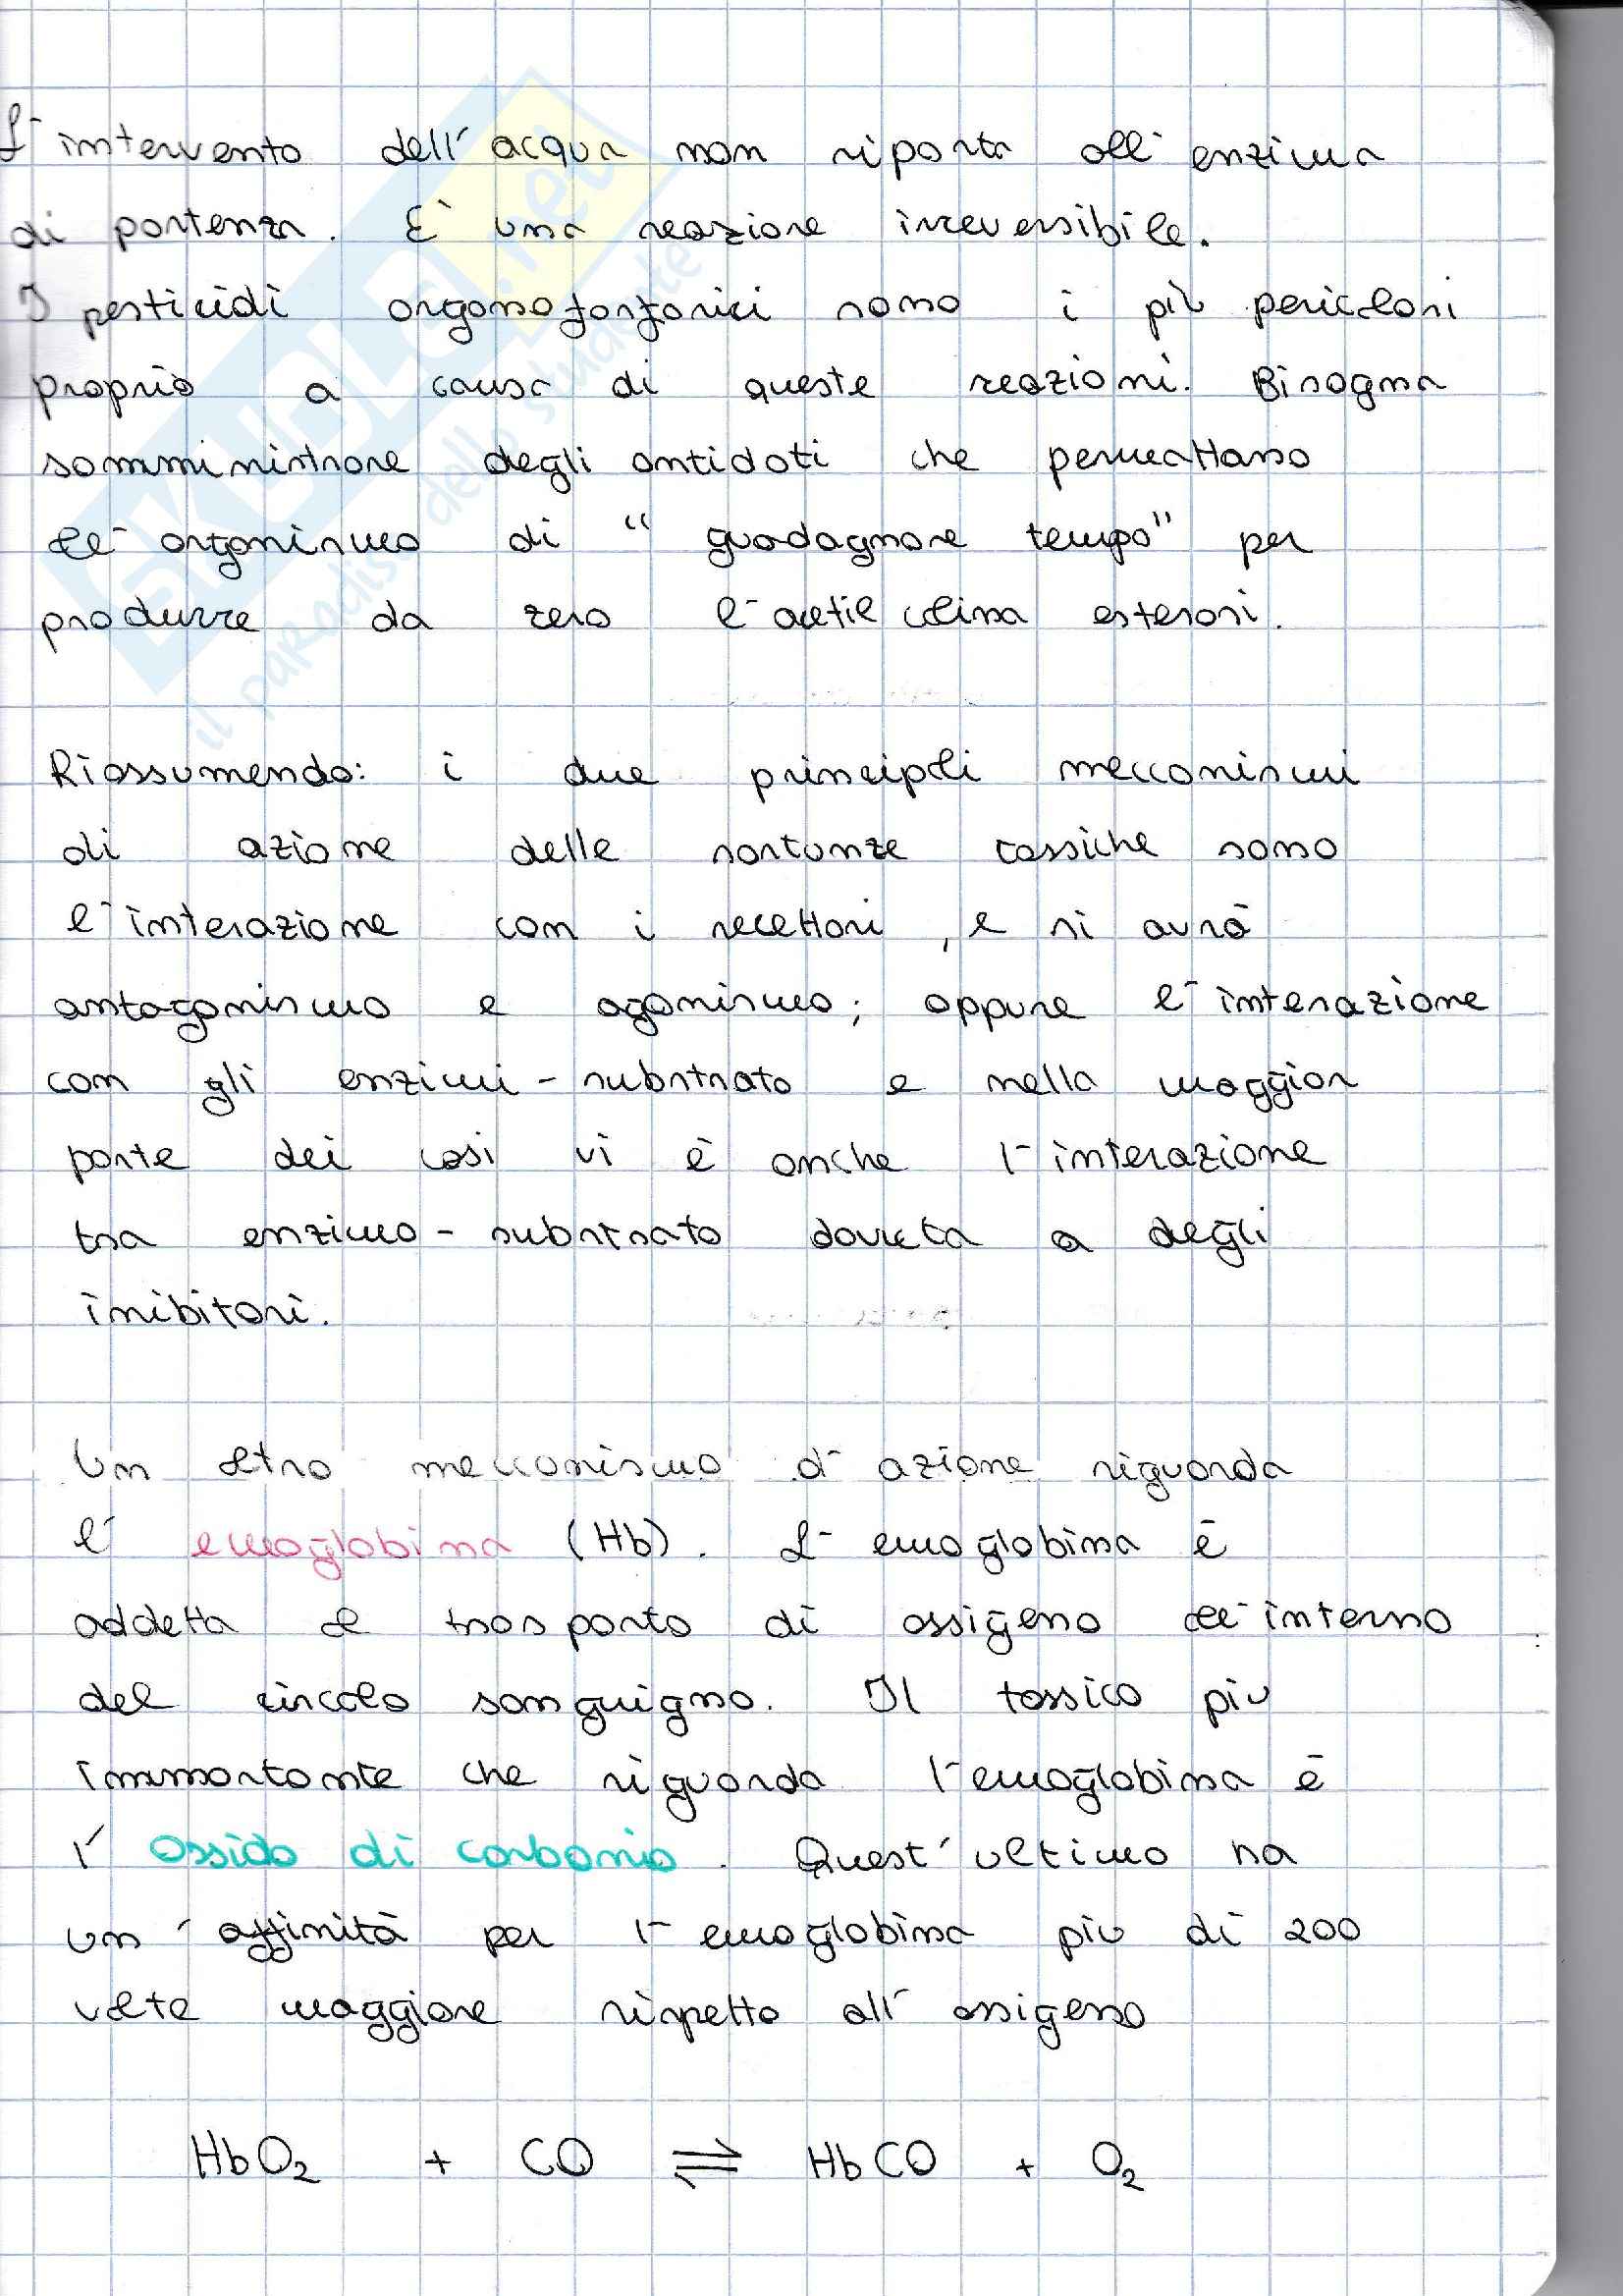 L'intervento dell'acqua non riporta all'enzima
di partenza. È una reazione irreversibile.
I pesticidi organofosforici sono i più pericolosi
proprio a causa di queste reazioni. Bisogna
somministrare degli antidoti che permettano
all'organismo di "guadagnare tempo" per
produrre da zero l'acetil colina esterasi.
Riassumendo: i due principali meccanismi
di azione delle sostanze tossiche sono
l'interazione con i recettori, e si avrà
antagonismo e agonismo; oppure l'interazione
con gli enzimi-substrato e nella maggior
parte dei casi vi è anche l'interazione
tra enzimo-substrato dovuta a degli
inibitori.
Un altro meccanismo d'azione riguarda
l'emoglobina (Hb). L'emoglobina è
addetta al trasporto di ossigeno all'interno
del circolo sanguigno. Il tossico più
immortante che riguarda l'emoglobina è
l'ossido di carbonio. Quest'ultimo ha
un'affinità per l'emoglobina più di 200
volte maggiore rispetto all'ossigeno
HbO₂ + CO ⇌ HbCO + O₂
SKUOLA.net
il paradiso dello studente